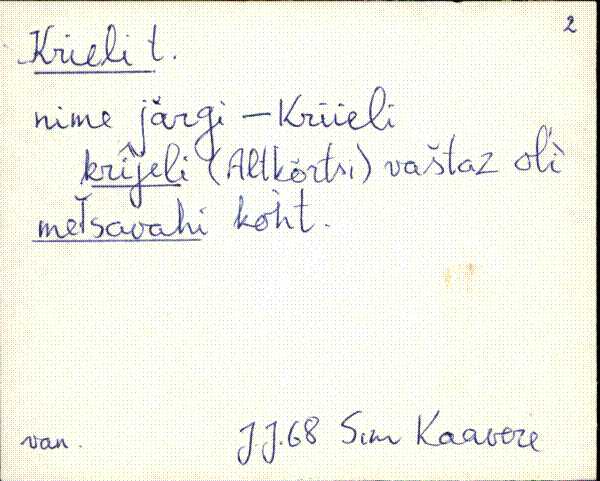 2
Krieli t.
nime järgi – Kriieli
krijeli (Altkõrtsi) vaštaz ol'ì
metsavahi koht.
van. J.J.68 Sim Kaavere